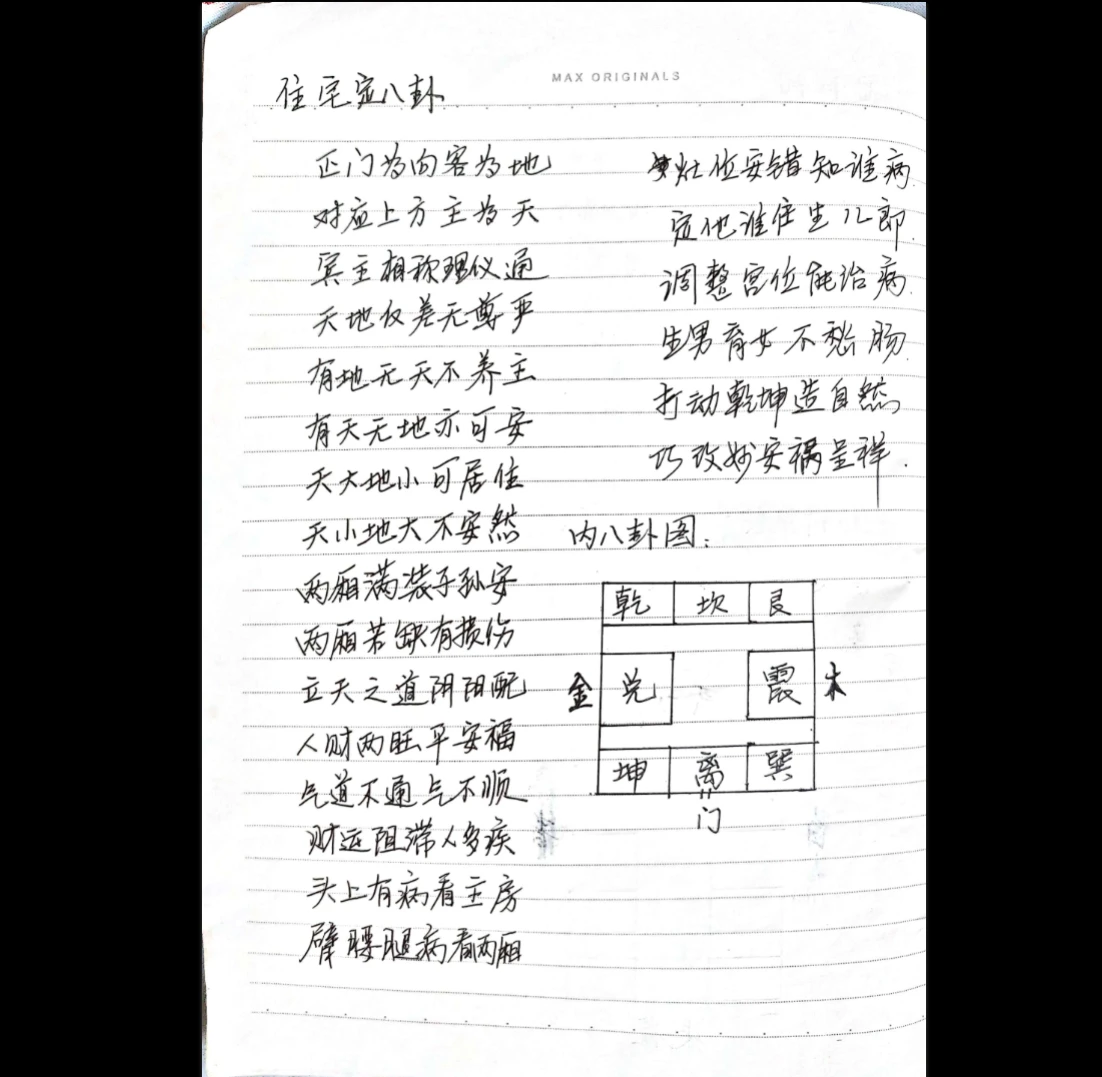 MAX ORIGINALS
住宅定八卦
正门为向客为地
对应上方主为天
宾主相称理仪通
天地仪差无尊严
有地无天不养主
有天无地亦可安
天大地小可居住
天小地大不安然
两厢满装子孙安
两厢若缺有损伤
立天之道阴阳配
人财两旺平安福
气道不通气不顺
财运阻滞人多疾
头上有病看主房
臂腰腿病看两厢
灶位安错知谁病
定他谁住生儿郎
调整宫位能治病
生男育女不愁肠
打动乾坤造自然
巧改妙安祸呈祥
内八卦图：
乾 坎 艮
金 兑 震 木
坤 离 巽
门